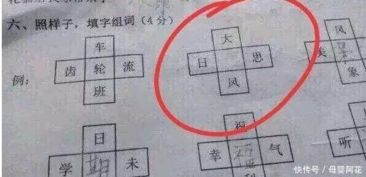 六、照样子，填字组词（4分）
车 大 风
齿 轮 流 日 思 失 象
例： 班 风
日 祝
学 期 未 幸 福 气 听
利
快传号 / 母婴阿花